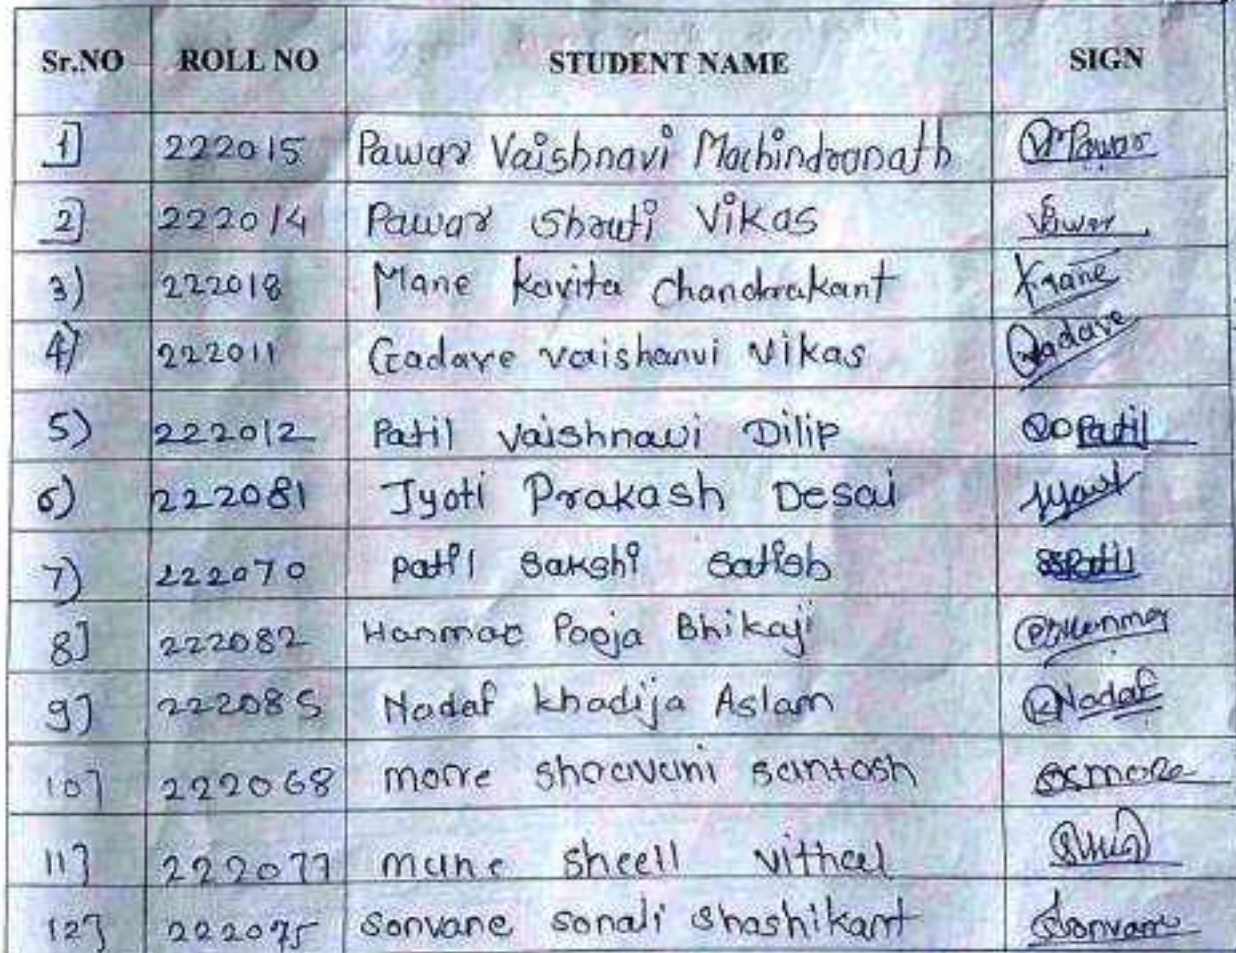 Sr.NO ROLL NO STUDENT NAME SIGN
1] 222015 Pawar Vaishnavi Machindranath Pawar
2] 222014 Pawar Shruti Vikas Pawar
3) 222018 Mane Kavita Chandrakant Kmane
4) 222011 Gadave vaishanvi Vikas Gadave
5) 222012 Patil Vaishnavi Dilip Patil
6) 222081 Jyoti Prakash Desai
7) 222070 patil Sakshi Satish SSPatil
8] 222082 Hanmar Pooja Bhikaji
9] 222085 Nadaf khadija Aslam Nadaf
10] 222068 more shravani santosh more
11] 222077 mane vithal
12] 222075 sonvane sonali shashikant Sonvane